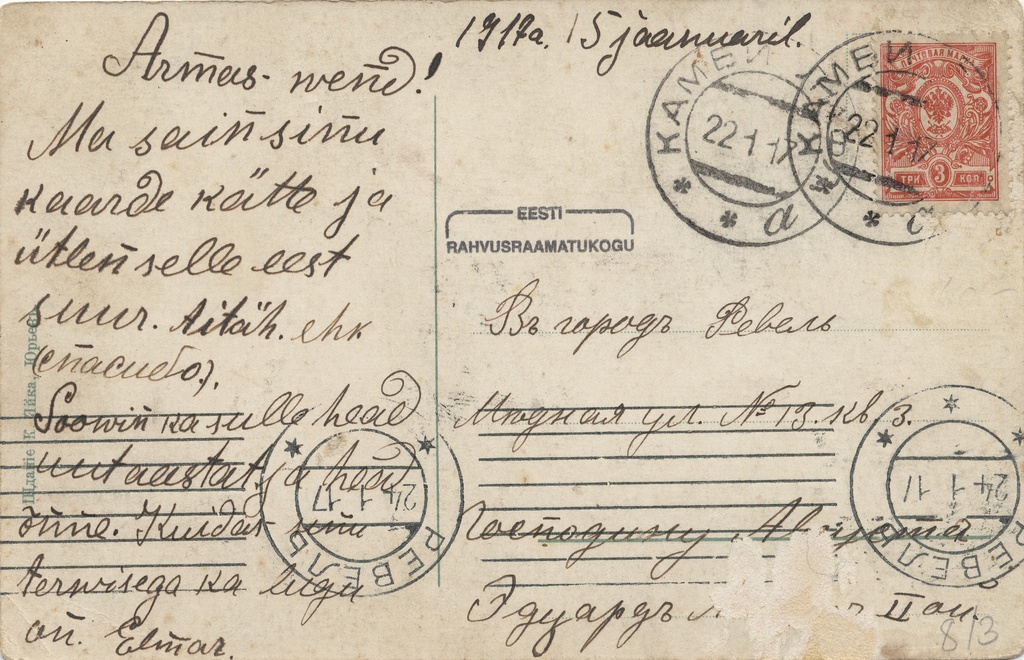 1917a. 15 jaanuaril.
Armas wend!
Ma sain sinu
kaarde kätte ja
ütlen selle eest
suur. Aitäh. ehk
(спасибо).
Soowin ka sulle head
uut aastat ja head
õnne. Kuidas sinu
terwisega ka lugu
on. Elmar.
EESTI
RAHVUSRAAMATUKOGU
КАМБИ
22 1 17
а
КАМБИ
22 1 17
ПОЧТОВАЯ МАРКА
ТРИ 3 КОП
Въ городъ Ревель
Мюдная ул. № 13. кв 3.
Господину
Эдуардъ II
РЕВЕЛЬ
24 1 17
РЕВЕЛЬ
24 1 17
8/3
Юрьевъ